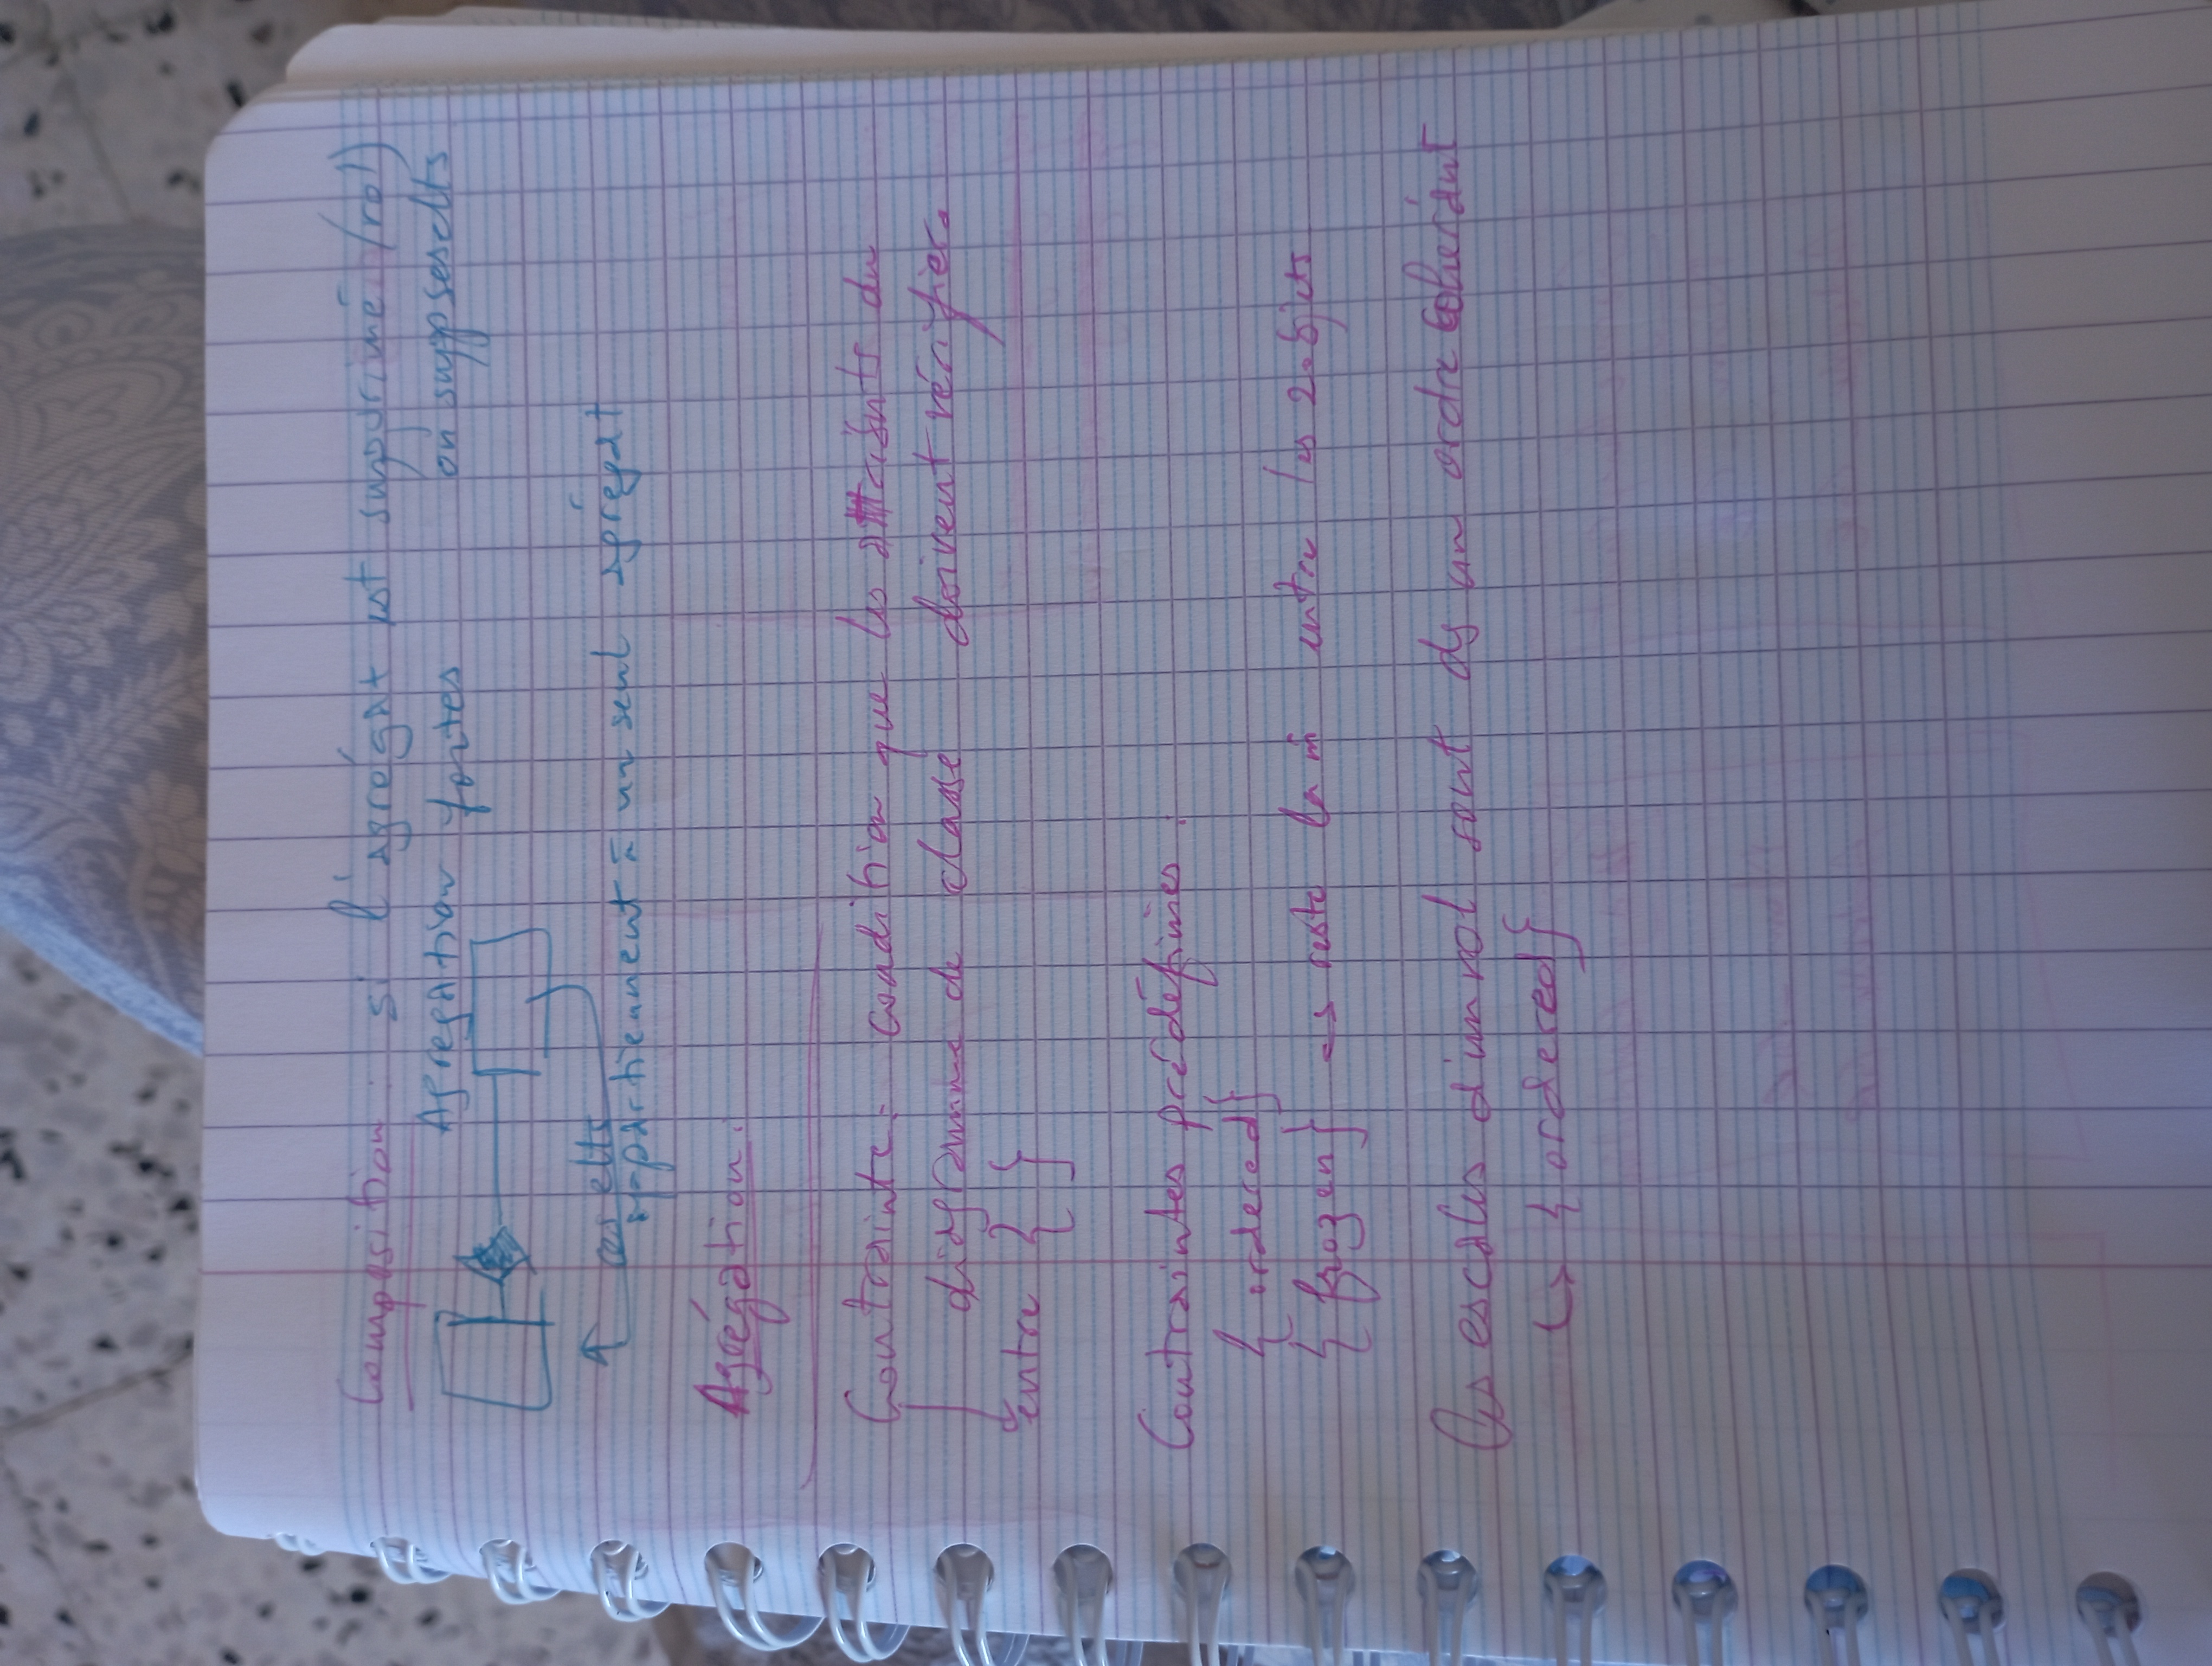 Composition : si l'agrégat est supprimé (vol)
Agregation fortes on supp ses elts
ces elts
appartiennent à un seul agrégat
Agrégation :
Contrainte = condition que les attributs du
diagramme de classe doivent vérifier.
entre { }
Contraintes prédéfinies :
{ ordered}
{ frozen} → reste la m̂ entre les 2 objets
Les escales d'un vol sont ds un ordre cohérant
↳ { ordered}